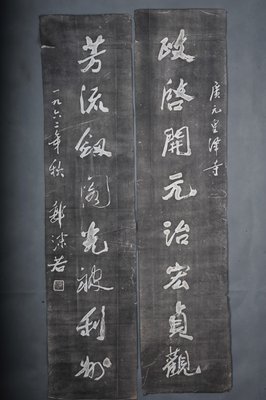 廣元皇澤寺
政啓開元治宏貞觀
芳流劒阁光被利州
一九六二年秋 郭沫若